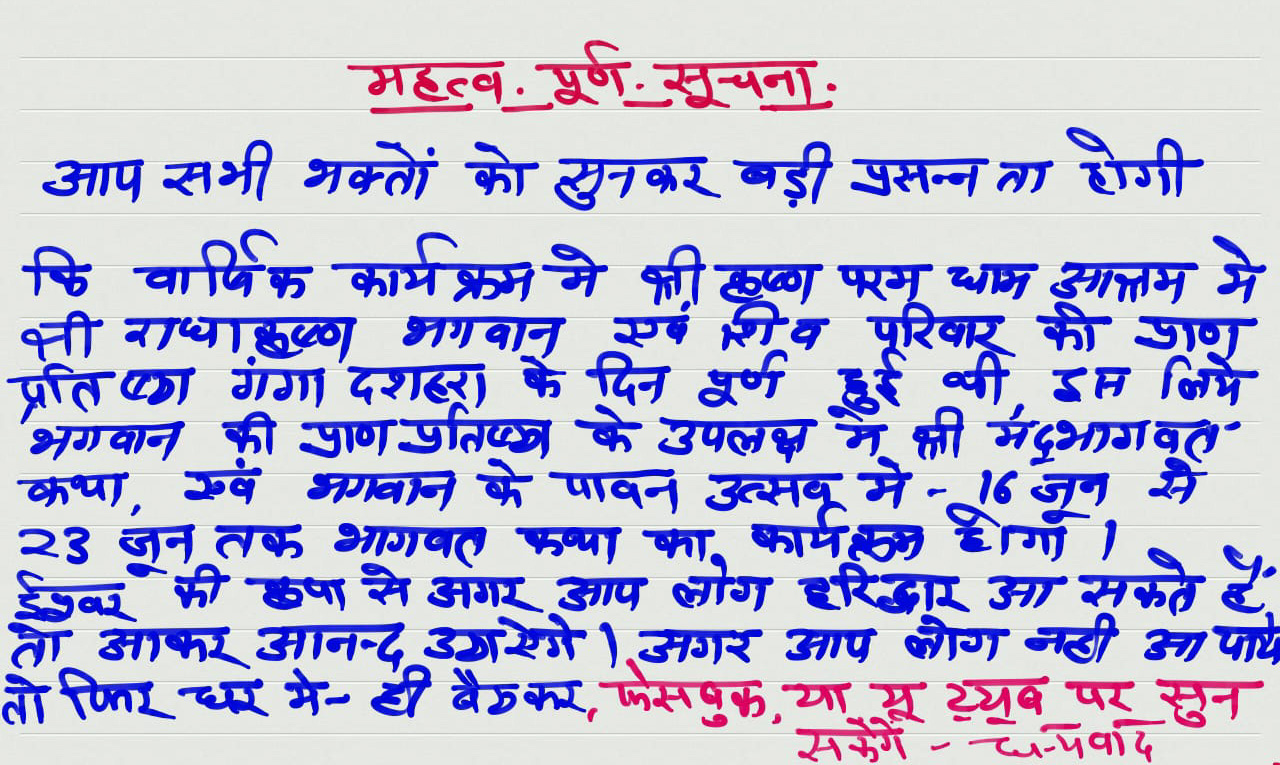 महत्व. पूर्ण. सूचना.
आप सभी भक्तों को सुनकर बड़ी प्रसन्नता होगी
कि वार्षिक कार्यक्रम मे श्री कृष्ण परम धाम आश्रम मे
श्री राधाकृष्ण भगवान एवं शिव परिवार की प्राण
प्रतिष्ठा गंगा दशहरा के दिन पूर्ण हुई थी, इस लिये
भगवान की प्राण प्रतिष्ठा के उपलक्ष में श्री मंद्भागवत
कथा, एवं भगवान के पावन उत्सव मे - 16 जून से
23 जून तक भागवत कथा का, कार्यक्रम होगा ।
ईश्वर की कृपा से अगर आप लोग हरिद्वार आ सकते हैं,
तो आकर आनन्द उठाएंगे । अगर आप लोग नही आ पाये
तो फिर घर मे - ही बैठकर, फेसबुक, या यू ट्यूब पर सुन
सकेंगें - धन्यवाद